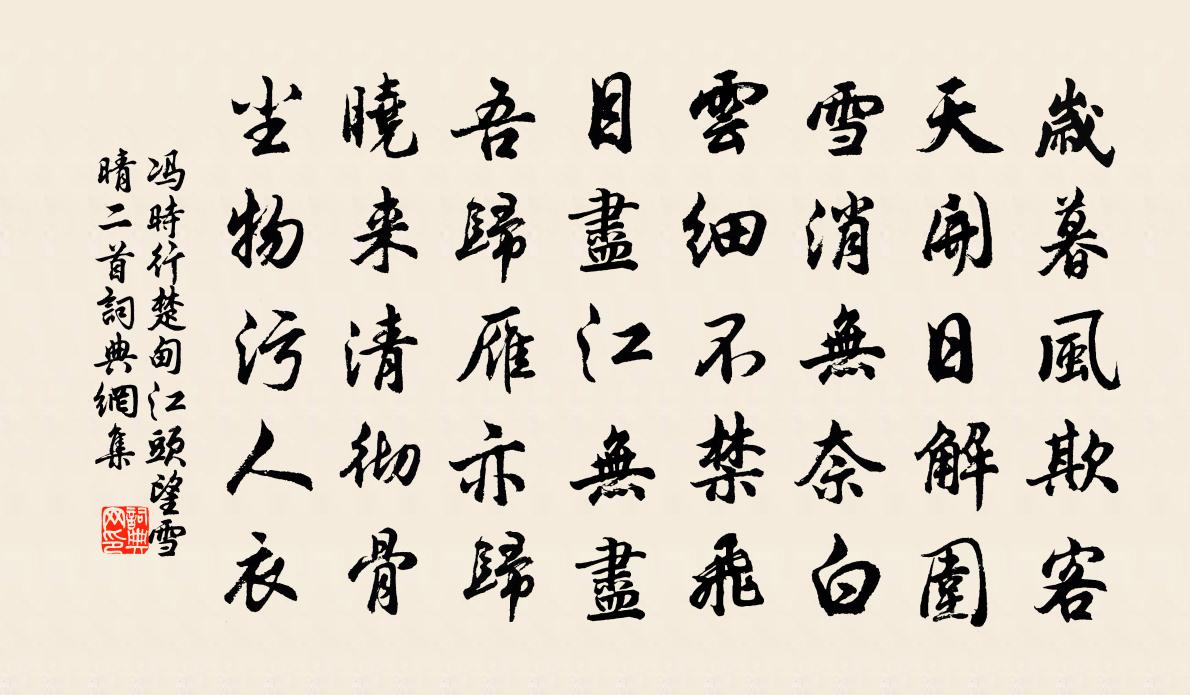 歲暮風欺客
天開日解圍
雪消無奈白
雲細不禁飛
目盡江無盡
吾歸雁亦歸
曉来清彻骨
尘物污人衣
冯時行楚甸江頭望雪
晴二首詞典網集
詞典网印